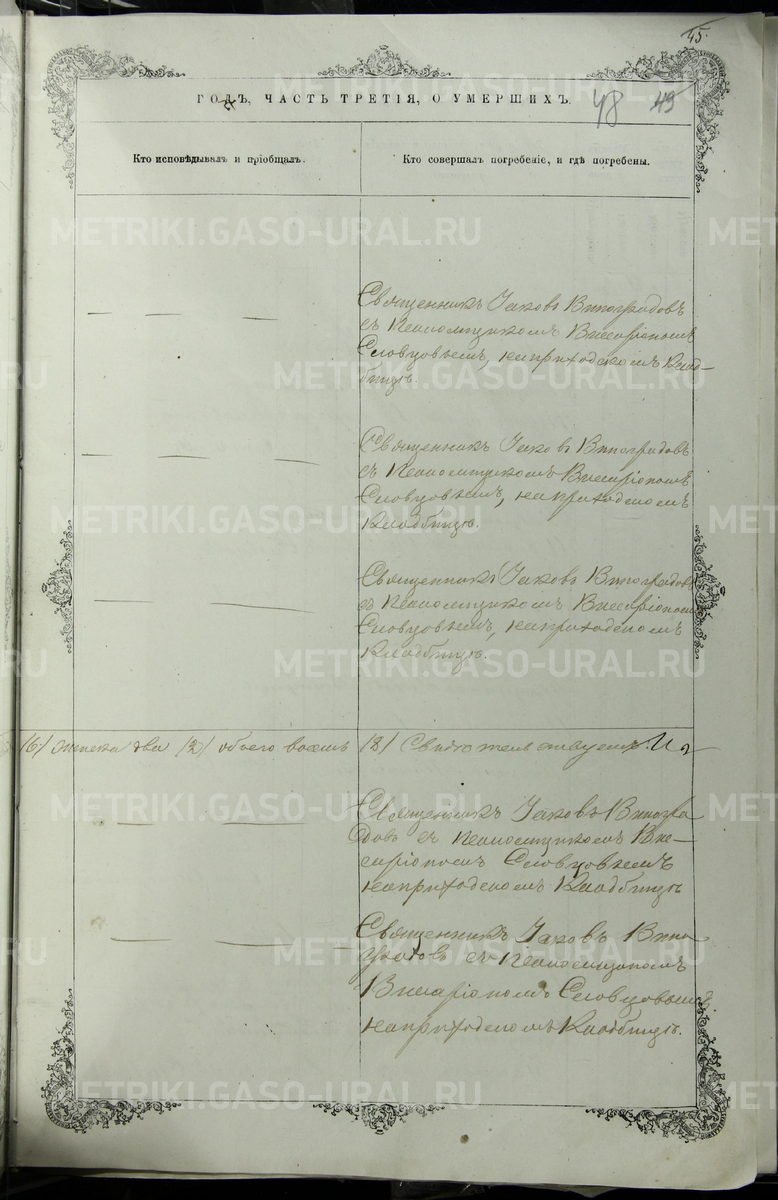 45.
ГОДЪ, ЧАСТЬ ТРЕТІЯ, О УМЕРШИХЪ.
48 43
Кто исповѣдывалъ и пріобщалъ.
Кто совершалъ погребеніе, и гдѣ погребены.
Священникъ Іаковъ Виноградовъ
съ Псаломщикомъ Виссаріономъ
Словцовымъ, на приходскомъ Клад-
бищѣ.
Священникъ Іаковъ Виноградовъ
съ Псаломщикомъ Виссаріономъ
Словцовымъ, на приходскомъ
Кладбищѣ.
Священникъ Іаковъ Виноградовъ
съ Псаломщикомъ Виссаріономъ
Словцовымъ, на приходскомъ
Кладбищѣ.
(6) женска два (2) обоего восемь (8) Свидѣтельствуемъ
Священникъ Іаковъ Виногра
довъ съ Псаломщикомъ Вис-
саріономъ Словцовымъ
на приходскомъ Кладбищѣ
Священникъ Іаковъ Вино
градовъ съ Псаломщикомъ
Виссаріономъ Словцовымъ
на приходскомъ Кладбищѣ.
METRIKI.GASO-URAL.RU